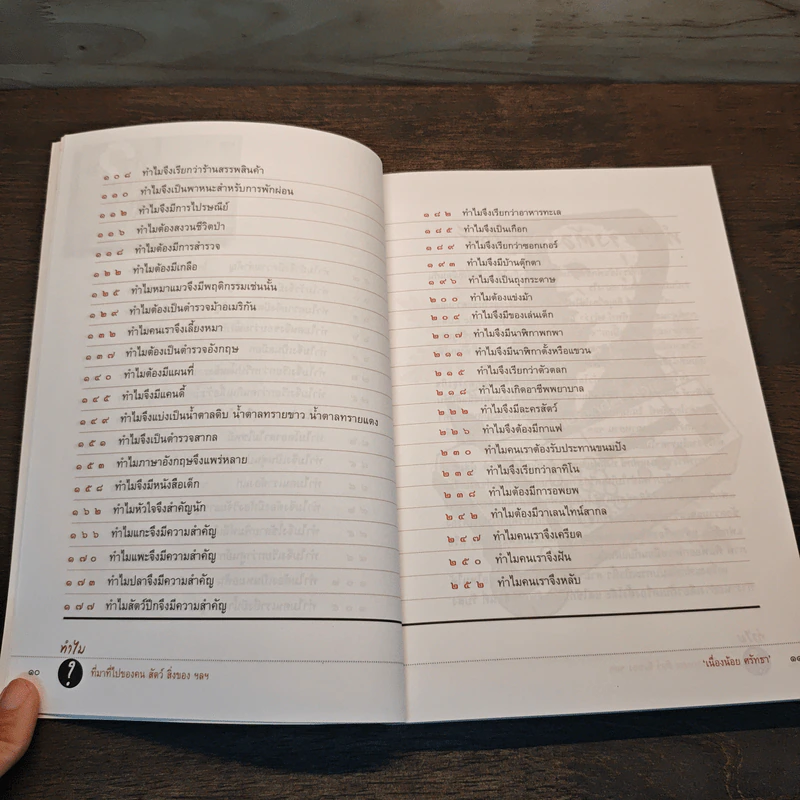 ๑๐๘ ทำไมจึงเรียกว่าร้านสรรพสินค้า
๑๑๐ ทำไมจึงเป็นพาหนะสำหรับการพักผ่อน
๑๑๒ ทำไมจึงมีการไปรษณีย์
๑๑๖ ทำไมต้องสงวนชีวิตป่า
๑๑๘ ทำไมต้องมีการสำรวจ
๑๒๒ ทำไมต้องมีเกลือ
๑๒๕ ทำไมหมาแมวจึงมีพฤติกรรมเช่นนั้น
๑๒๙ ทำไมต้องเป็นตำรวจม้าอเมริกัน
๑๓๒ ทำไมคนเราจึงเลี้ยงหมา
๑๓๗ ทำไมต้องเป็นตำรวจอังกฤษ
๑๔๐ ทำไมต้องมีแผนที่
๑๔๕ ทำไมจึงมีแคนดี้
๑๔๙ ทำไมจึงแบ่งเป็นน้ำตาลดิบ น้ำตาลทรายขาว น้ำตาลทรายแดง
๑๕๑ ทำไมจึงเป็นตำรวจสากล
๑๕๓ ทำไมภาษาอังกฤษจึงแพร่หลาย
๑๕๘ ทำไมจึงมีหนังสือเด็ก
๑๖๒ ทำไมหัวใจจึงสำคัญนัก
๑๖๖ ทำไมแกะจึงมีความสำคัญ
๑๗๐ ทำไมแพะจึงมีความสำคัญ
๑๗๓ ทำไมปลาจึงมีความสำคัญ
๑๗๗ ทำไมสัตว์ปีกจึงมีความสำคัญ
ทำไม
๑๐ ? ที่มาที่ไปของคน สัตว์ สิ่งของ ฯลฯ
๑๘๒ ทำไมจึงเรียกว่าอาหารทะเล
๑๘๕ ทำไมจึงเป็นเกือก
๑๘๙ ทำไมจึงเรียกว่าซอกเกอร์
๑๙๓ ทำไมจึงมีบ้านตุ๊กตา
๑๙๖ ทำไมจึงเป็นถุงกระดาษ
๒๐๐ ทำไมต้องแข่งม้า
๒๐๔ ทำไมจึงมีของเล่นเด็ก
๒๐๗ ทำไมจึงมีนาฬิกาพกพา
๒๑๑ ทำไมจึงมีนาฬิกาตั้งหรือแขวน
๒๑๕ ทำไมจึงเรียกว่าตัวตลก
๒๑๘ ทำไมจึงเกิดอาชีพพยาบาล
๒๒๒ ทำไมจึงมีละครสัตว์
๒๒๖ ทำไมจึงต้องมีกาแฟ
๒๓๐ ทำไมคนเราต้องรับประทานขนมปัง
๒๓๔ ทำไมจึงเรียกว่าลาทิโน
๒๓๘ ทำไมต้องมีการอพยพ
๒๔๒ ทำไมต้องมีวาเลนไทน์สากล
๒๔๗ ทำไมคนเราจึงเครียด
๒๕๐ ทำไมคนเราจึงฝัน
๒๕๒ ทำไมคนเราจึงหลับ
'เนื่องน้อย ศรัทธา' ๑๑